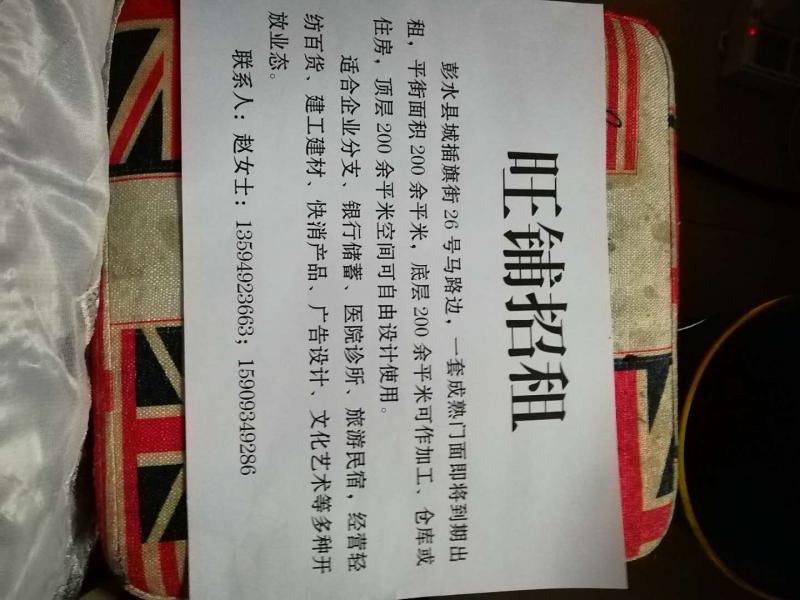 旺铺招租
彭水县城插旗街 26 号马路边，一套成熟门面即将到期出
租，平街面积 200 余平米，底层 200 余平米可作加工、仓库或
住房，顶层 200 余平米空间可自由设计使用。
适合企业分支、银行储蓄、医院诊所、旅游民宿，经营轻
纺百货、建工建材、快消产品、广告设计、文化艺术等多种开
放业态。
联系人：赵女士：13594923663；15909349286